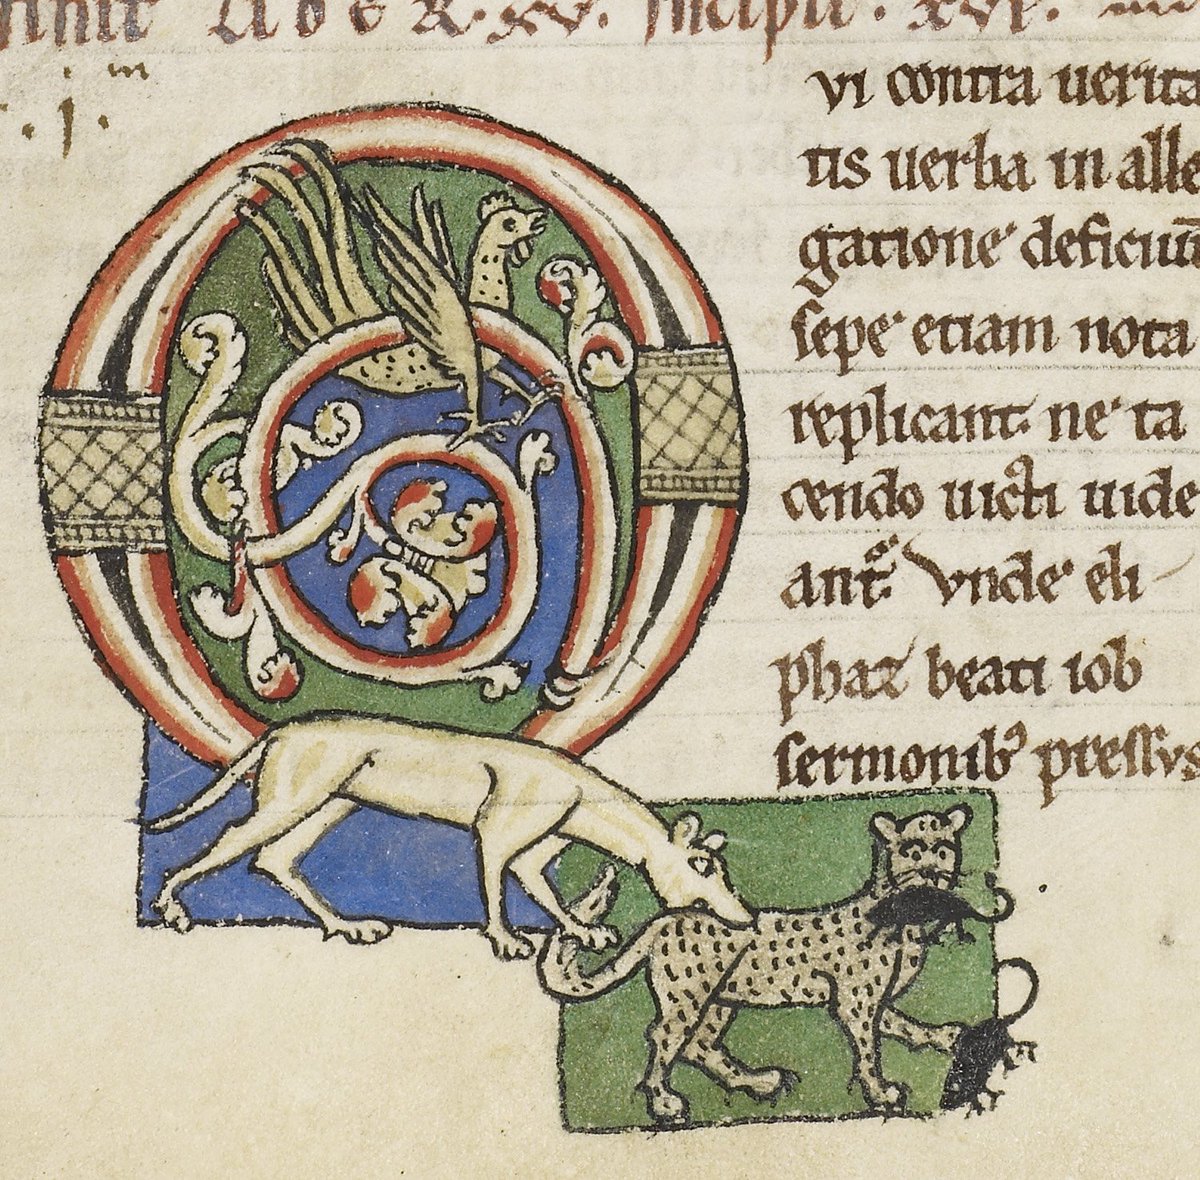 LIBER. XV. Incipit. XVI.
.j.
Qui contra uerita
tis uerba in alle
gatione deficiūt
sepe etiam nota
replicant. ne ta
cendo uicti uide
ant᷑. Vnde eli
phaz beati iob
sermonib᷒ pressus